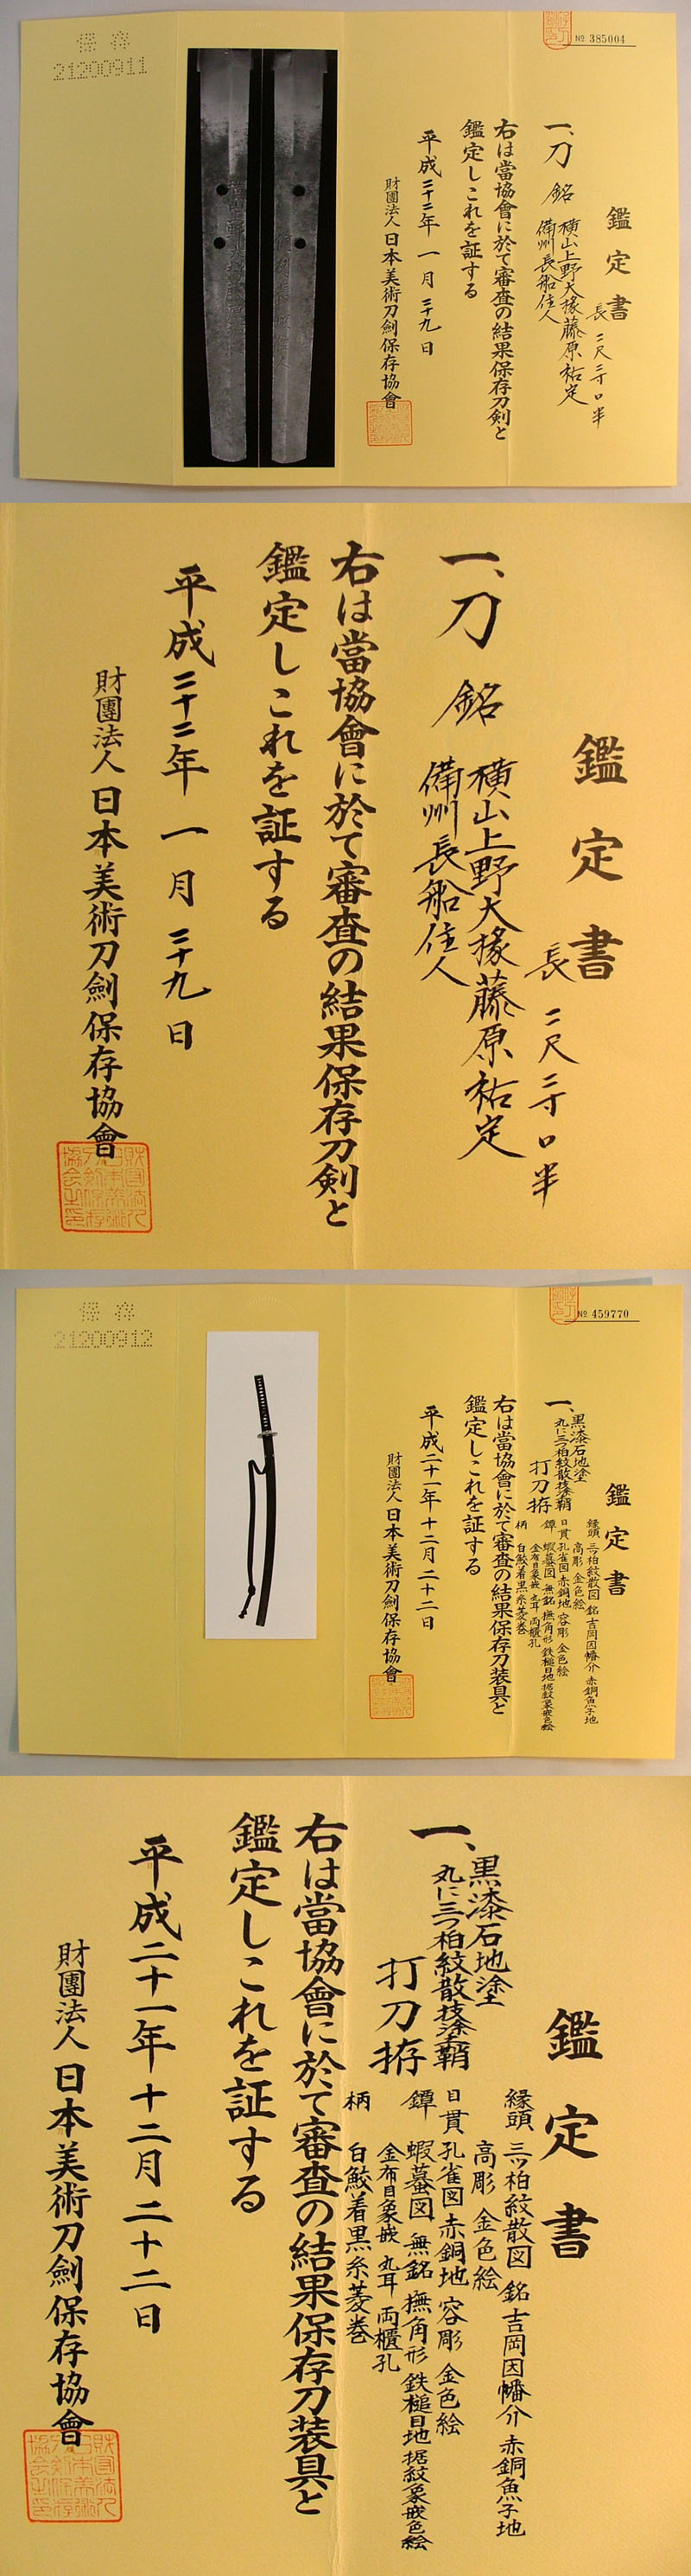 保存
21200911
№ 385004
鑑定書
一、刀 銘 横山上野大掾藤原祐定
備州長船住人
長 二尺三寸口半
右は當協會に於て審査の結果保存刀剣と
鑑定しこれを証する
平成二十二年 一月 二十九日
財團法人日本美術刀劍保存協會
鑑定書
長 二尺三寸口半
一、刀 銘 横山上野大掾藤原祐定
備州長船住人
右は當協會に於て審査の結果保存刀剣と
鑑定しこれを証する
平成二十二年 一月 二十九日
財團法人日本美術刀劍保存協會
保存
21200912
№ 459770
鑑定書
一、黒漆石地塗
丸に三ツ柏紋散技塗鞘
打刀拵
縁頭 三ツ柏紋散図 銘 吉岡因幡介 赤銅魚子地
高彫 金色絵
目貫 孔雀図 赤銅地 容彫 金色絵
鐔 蝦蟇図 無銘 撫角形 鉄槌目地 据紋象嵌色絵
金布目象嵌 丸耳 両櫃孔
柄 白鮫着黒糸菱巻
右は當協會に於て審査の結果保存刀装具と
鑑定しこれを証する
平成二十一年十二月二十二日
財團法人日本美術刀劍保存協會
鑑定書
一、黒漆石地塗
丸に三ツ柏紋散技塗鞘
打刀拵
縁頭 三ツ柏紋散図 銘 吉岡因幡介 赤銅魚子地
高彫 金色絵
目貫 孔雀図 赤銅地 容彫 金色絵
鐔 蝦蟇図 無銘 撫角形 鉄槌目地 据紋象嵌色絵
金布目象嵌 丸耳 両櫃孔
柄 白鮫着黒糸菱巻
右は當協會に於て審査の結果保存刀装具と
鑑定しこれを証する
平成二十一年十二月二十二日
財團法人日本美術刀劍保存協會